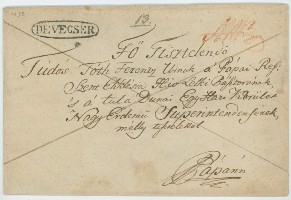 DEVECSER
13.
Fő Tisztelendő
Tudós Tóth Ferencz Urnak a Pápai Ref.
Szent Ekklésia Hív Lelki Pásztorának
's a' túla Dunai Egyházi Kerület
Nagy Érdemű Superintendensének
mély tisztelettel
Pápánn